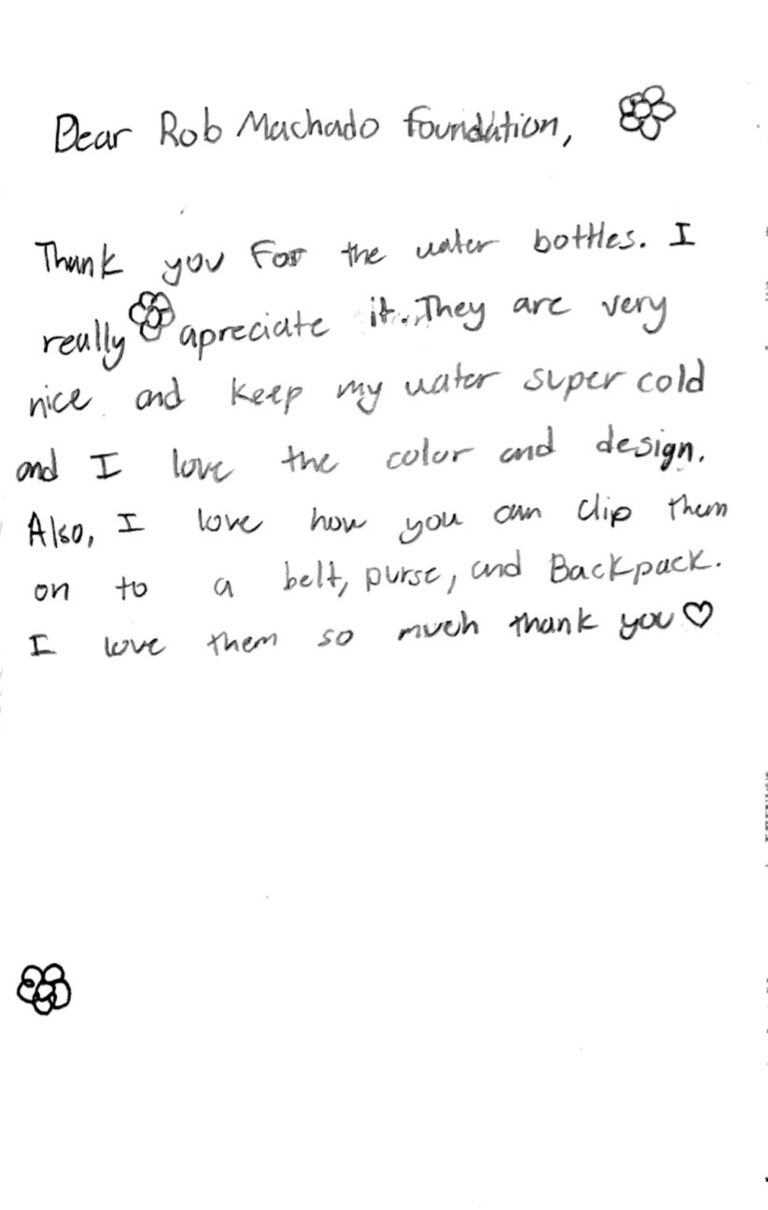 Dear Rob Machado foundation,
Thank you For the water bottles. I
really apreciate it. They are very
nice and keep my water super cold
and I love the color and design.
Also, I love how you can clip them
on to a belt, purse, and Backpack.
I love them so much thank you♡